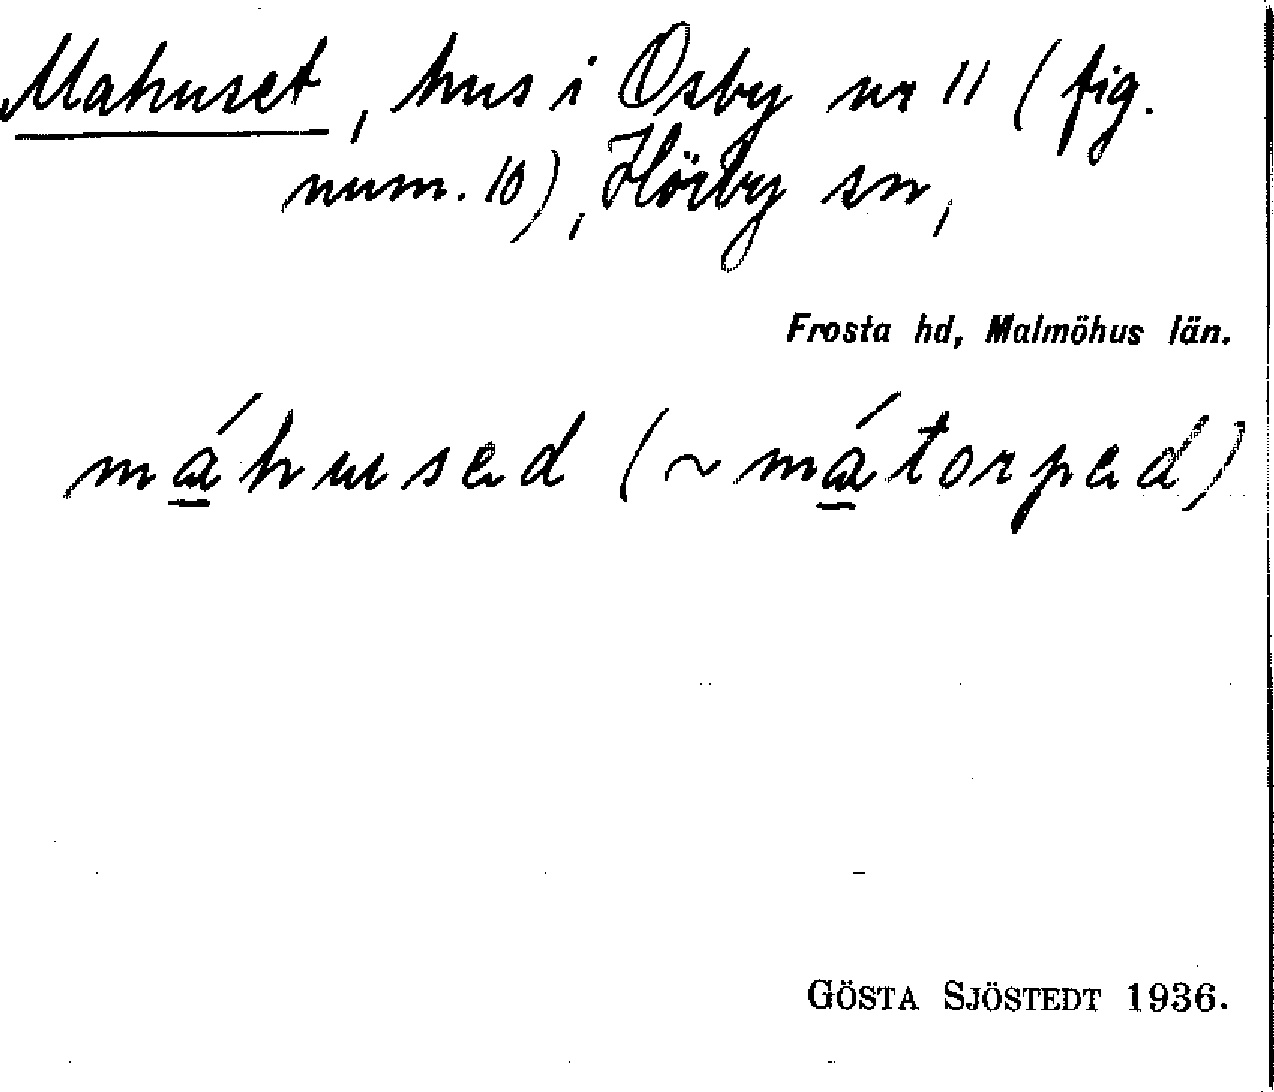 Mahuset, hus i Osby nr 11 (fig.
num. 10), Hörby sn,
Frosta hd, Malmöhus län.
má̱hused (~ má̱torped)
GÖSTA SJÖSTEDT 1936.